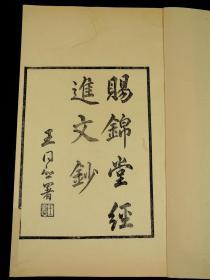 賜錦堂經
進文鈔
王同愈署